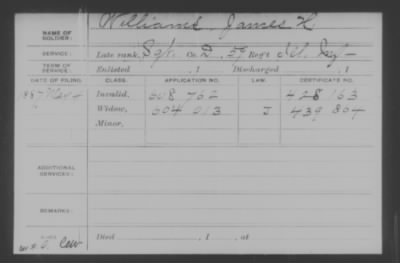 NAME OF SOLDIER: Williams, James H
SERVICE: Late rank, Sgt. Co. D, 59 Reg't Ill. Inf
TERM OF SERVICE: Enlisted , 1 Discharged , 1
DATE OF FILING. CLASS. APPLICATION NO. LAW. CERTIFICATE NO.
1887 Invalid, 608 762 428 163
Widow, 604 013 J 439 804
Minor,
ADDITIONAL SERVICES:
REMARKS:
Died , 1 , at